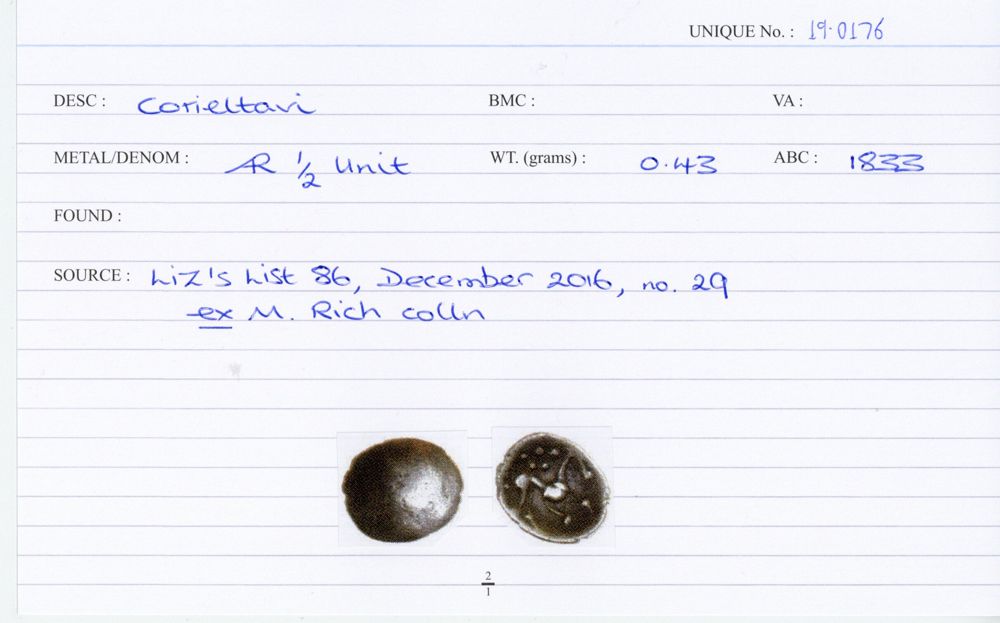 UNIQUE No. : 19.0176
DESC : Corieltavi BMC : VA :
METAL/DENOM : AR 1/2 Unit WT. (grams) : 0.43 ABC : 1833
FOUND :
SOURCE : Liz's List 86, December 2016, no. 29
ex M. Rich colln
2/1